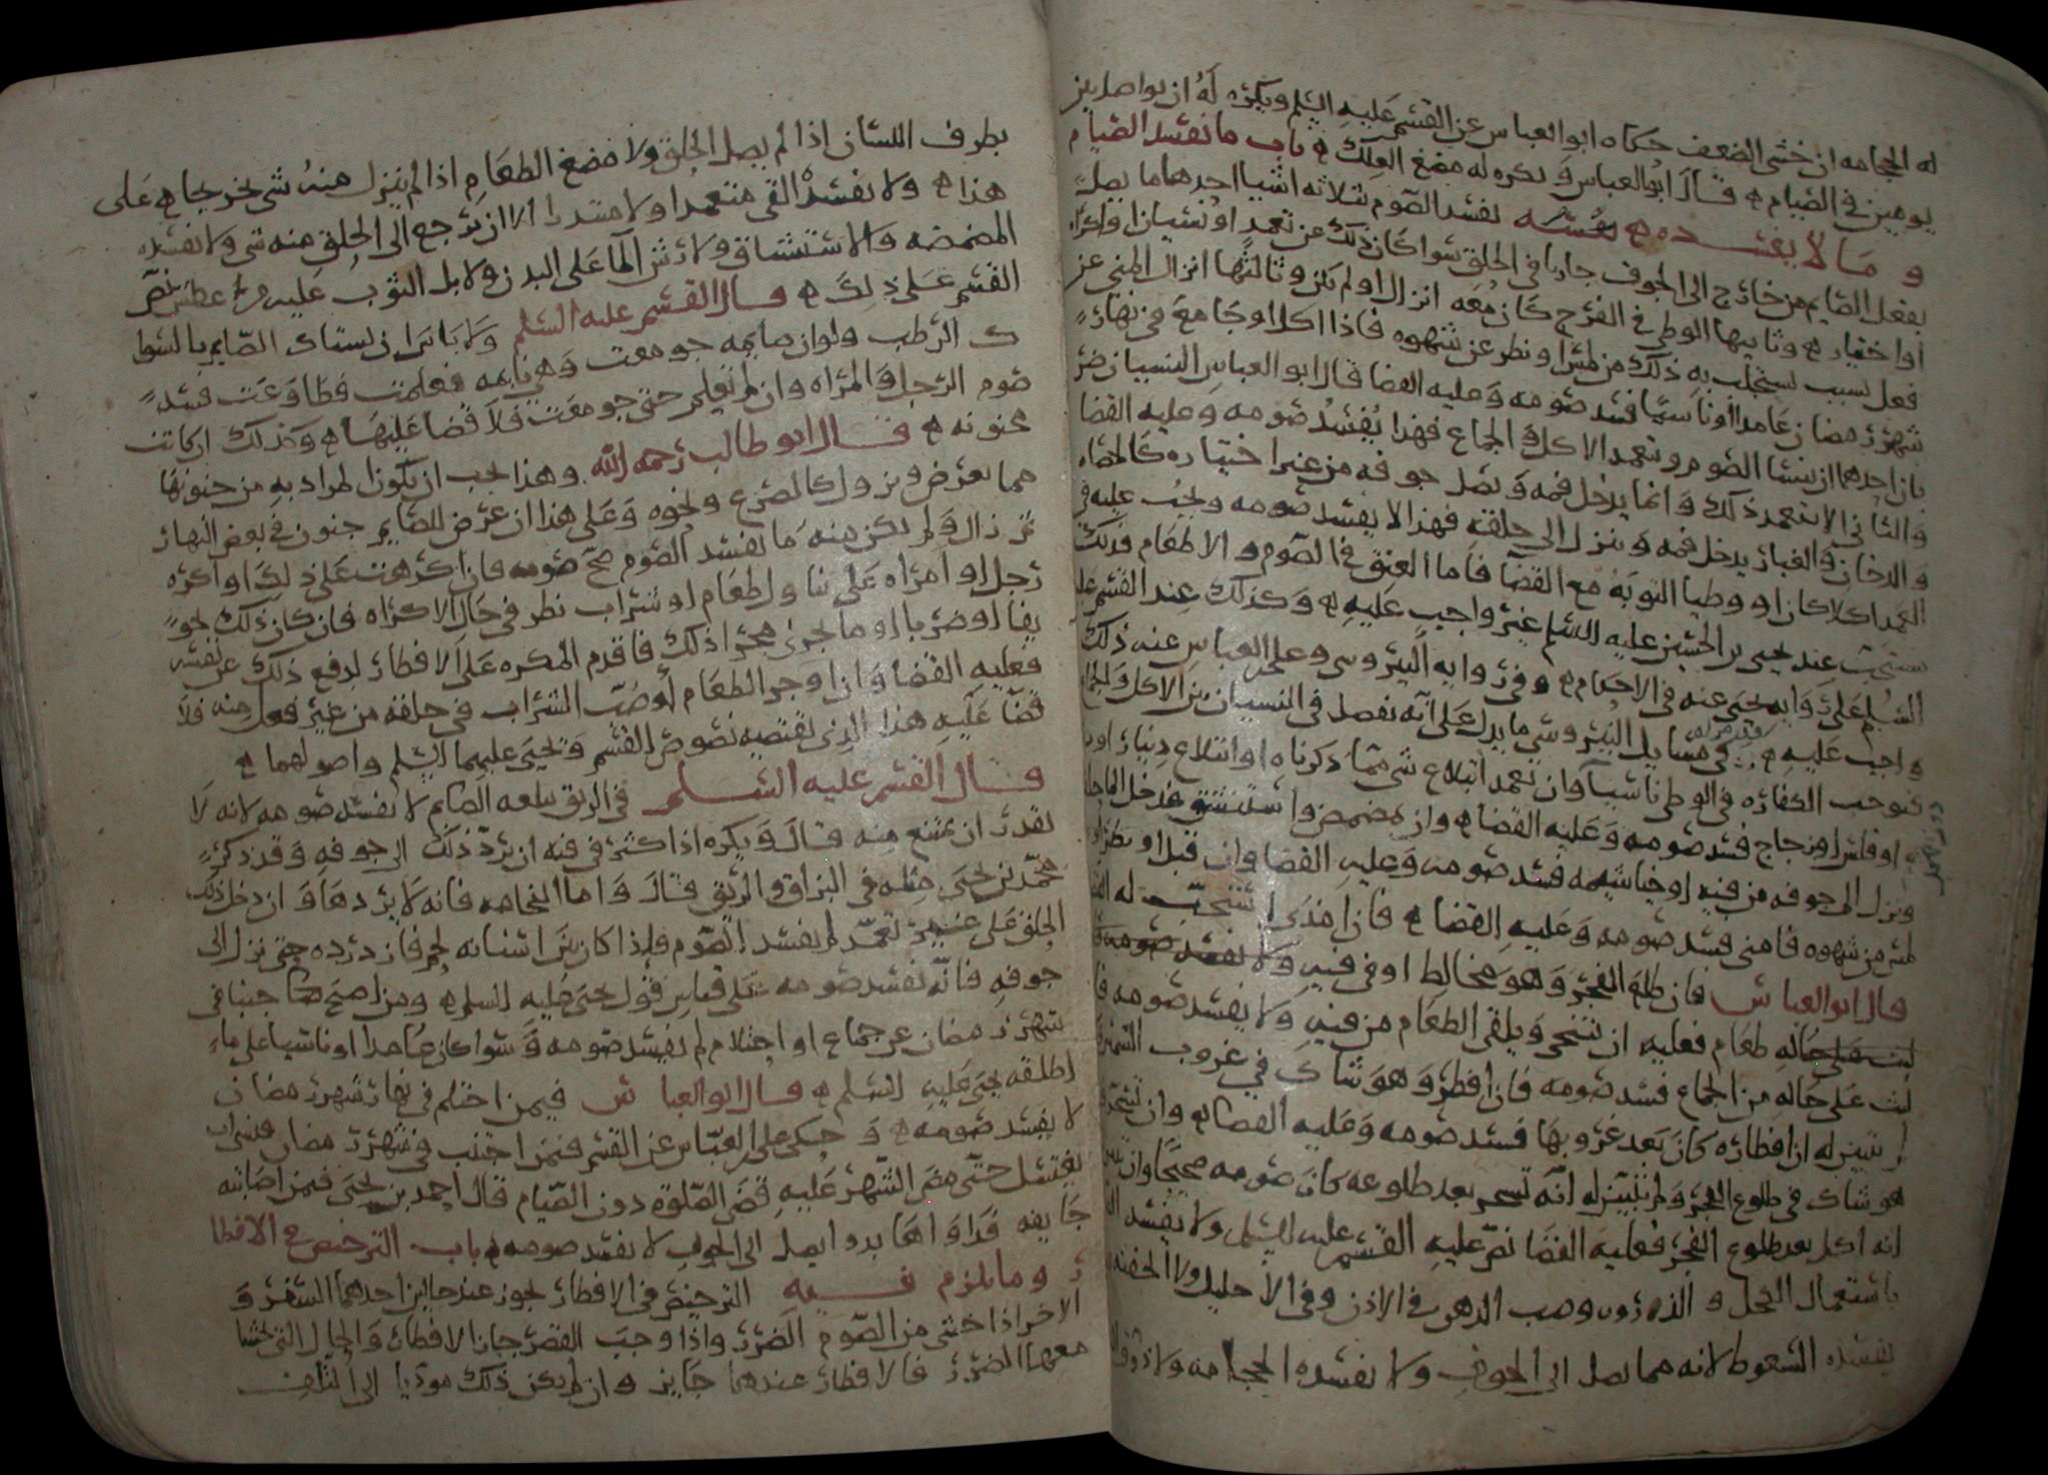 له الحجامه ان خشي الضعف حكاه ابو العباس عن القسم عليه السلم ويكره له ان يواصل بين
يومين في الصيام ه قال ابو العباس ويكره له مضغ العلك ه باب ما يفسد الصيام
و ما لا يفسده ه يفسد الصوم ثلاثه اشيا احدها ما يصل
بفعل الصايم من خارج الى الجوف جاريا في الحلق سوا كان ذلك عن تعمد او نسيان او اكراه
او اختيار ه وثانيها الوطي في الفرج كان معه انزال او لم يكن وثالثها انزال المني عن
فعل لسبب يستجلب به ذلك من لمس او نظر عن شهوه فاذا اكل او جامع في نهار
شهر رمضان عامدا او ناسيا فسد صومه وعليه القضا قال ابو العباس النسيان ضر
بان احدهما ان ينسا الصوم ويتعمد الاكل والجماع فهذا يفسد صومه وعليه القضا
والثاني الا يتعمد ذلك وانما يدخل فمه ويصل جوفه من غير اختياره كالحصاه
والدخان والغبار يدخل فمه وينزل الى حلقه فهذا لا يفسد صومه ويجب عليه في
العمد اكلا كان او وطيا التوبه مع القضا فاما العتق في الصوم والاطعام فذلك
يستحب عند يحيى بن الحسين عليه السلم غير واجب عليه ه وكذلك عند القسم عليه
السلم على روايه يحيى عنه في الاحكام ه وفي روايه النيروسي وعلي بن العباس عنه ذلك
واجب عليه ه وفي مسايل النيروسي ما يدل على انه يفصل في النسيان بين الاكل والجماع
فيوجب الكفاره في الوطي ناسيا وان تعمد ابتلاع شي مما ذكرناه او ابتلاع دينار او
او فلس او زجاج فسد صومه وعليه القضا ه وان مضمض واستنشق فدخل الما
ونزل الى جوفه من فيه او خياشيمه فسد صومه وعليه القضا وان قبل او نظر او
لمس من شهوه فامنى فسد صومه وعليه القضا ه فان امذى استحب له القضا
قال ابو العباس فان طلع الفجر وهو مخالط او في فيه ولا يفسد صومه
لبث على حاله طعام فعليه ان يتنحى ويلقي الطعام من فيه ولا يفسد صومه فا
لبث على حاله من الجماع فسد صومه فان افطر وهو شاك في غروب الشمس
لم يتبين له ان افطاره كان بعد غروبها فسد صومه وعليه القضا ه وان تسحر
هو شاك في طلوع الفجر ولم يتبين له انه تسحر بعد طلوعه كان صومه صحيحا وان تبين
انه اكل بعد طلوع الفجر فعليه القضا نص عليه القسم عليه السلم ولا يفسد
باستعمال الكحل و الذرور وصب الدهن في الاذن وفي الاحليل ولا الحقنه
يفسده السعوط لانه مما يصل الى الجوف ولا يفسده الحجامه ولا ذوق
بطرف اللسان اذا لم يصل الحلق ولا مضغ الطعام اذا لم ينزل منه شي يخرجاه على
هذا ه ولا يفسد القي متعمدا ولا مبتدرا الا ان يرجع الى الحلق منه شي ولا يفسده
المضمضه والاستنشاق ولا رش الما على البدن ولا بل الثوب عليه من عطش نص
القسم على ذلك ه قال القسم عليه السلم ولا باس ان يستاك الصايم بالسوا
ك الرطب ولو ان صايمه جومعت وهي نايمه فعلمت فطاوعت فسد
صوم الرجل والمراه وان لم تعلم حتى جومعت فلا قضا عليها ه وكذلك ان كانت
مجنونه ه قال ابو طالب رحمه الله وهذا يجب ان يكون المراد به من جنونها
مما يعرض ويزول كالصرع ونحوه وعلى هذا ان عرض للصايم جنون في بعض النهار
ثم زال ولم يكن منه ما يفسد الصوم صح صومه فان اكرهت على ذلك او اكره
رجل او امراه على تناول طعام او شراب نظر في حال الاكراه فان كان ذلك تخو
يفا او ضربا او ما يجرى مجرا ذلك فاقدم المكره على الافطار لدفع ذلك عن نفسه
فعليه القضا وان اوجر الطعام او صب الشراب في حلقه من غير فعل منه فلا
قضا عليه هذا الذي تقتضيه نصوص القسم ويحيى عليهما السلم واصولهما ه
قال القسم عليه السلم في الريق يبلعه الصايم لا يفسد صومه لانه لا
يقدر ان يمتنع منه قال ويكره اذا كثر في فيه ان يرد ذلك الى جوفه وقد ذكر
محمد بن يحيى مثله في البزاق والريق قال واما النخامه فانه لا يزدردها وان دخل ذلك
الحلق على غير تعمد لم يفسد الصوم فاذا كان بين اسنانه لحم فازدرده حتى نزل الى
جوفه فانه يفسد صومه على قياس قول يحيى عليه السلم ه ومن اصبح جنبا في
شهر رمضان عن جماع او احتلام لم يفسد صومه وسوا كان عامدا او ناسيا على ما
اطلقه يحيى عليه السلم ه قال ابو العباس فيمن احتلم في نهار شهر رمضان
لا يفسد صومه ه وحكى علي بن العباس عن القسم فيمن اجنب في شهر رمضان فنسي ان
يغتسل حتى مضى الشهر عليه قضى الصلوه دون الصيام قال احمد بن يحيى فيمن اصابته
جايفه فداواها بدوا يصل الى الجوف لا يفسد صومه ه باب الترخيص في الافطا
ر وما يلزم فيه الترخيص في الافطار يجوز عند حالين احدهما السفر و
الاخر اذا خشي من الصوم الضرر واذا وجب القصر جاز الافطار والحال التي يخشا
معها الضرر فالافطار عندها جايز وان لم يكن ذلك موديا الى التلف